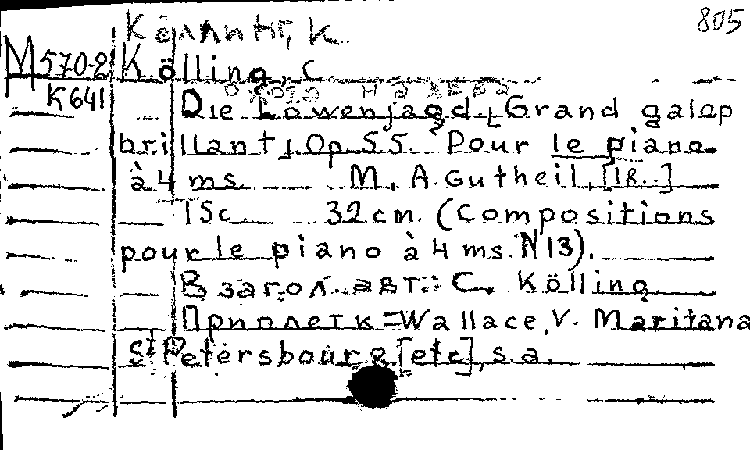 805
Кёллинг, К.
M 570-2 Kölling, C
K641 Охота на львов
Die Löwenjagd, Grand galop
brillant, Op. 55. Pour le piano
à 4 ms. M, A. Gutheil, [18..]
15c. 32 cm. (Compositions
pour le piano à 4 ms. N 13).
В загол. авт.: C. Kölling
Приплетк = Wallace, V. Maritana
St Petersbourg [etc], s.a.